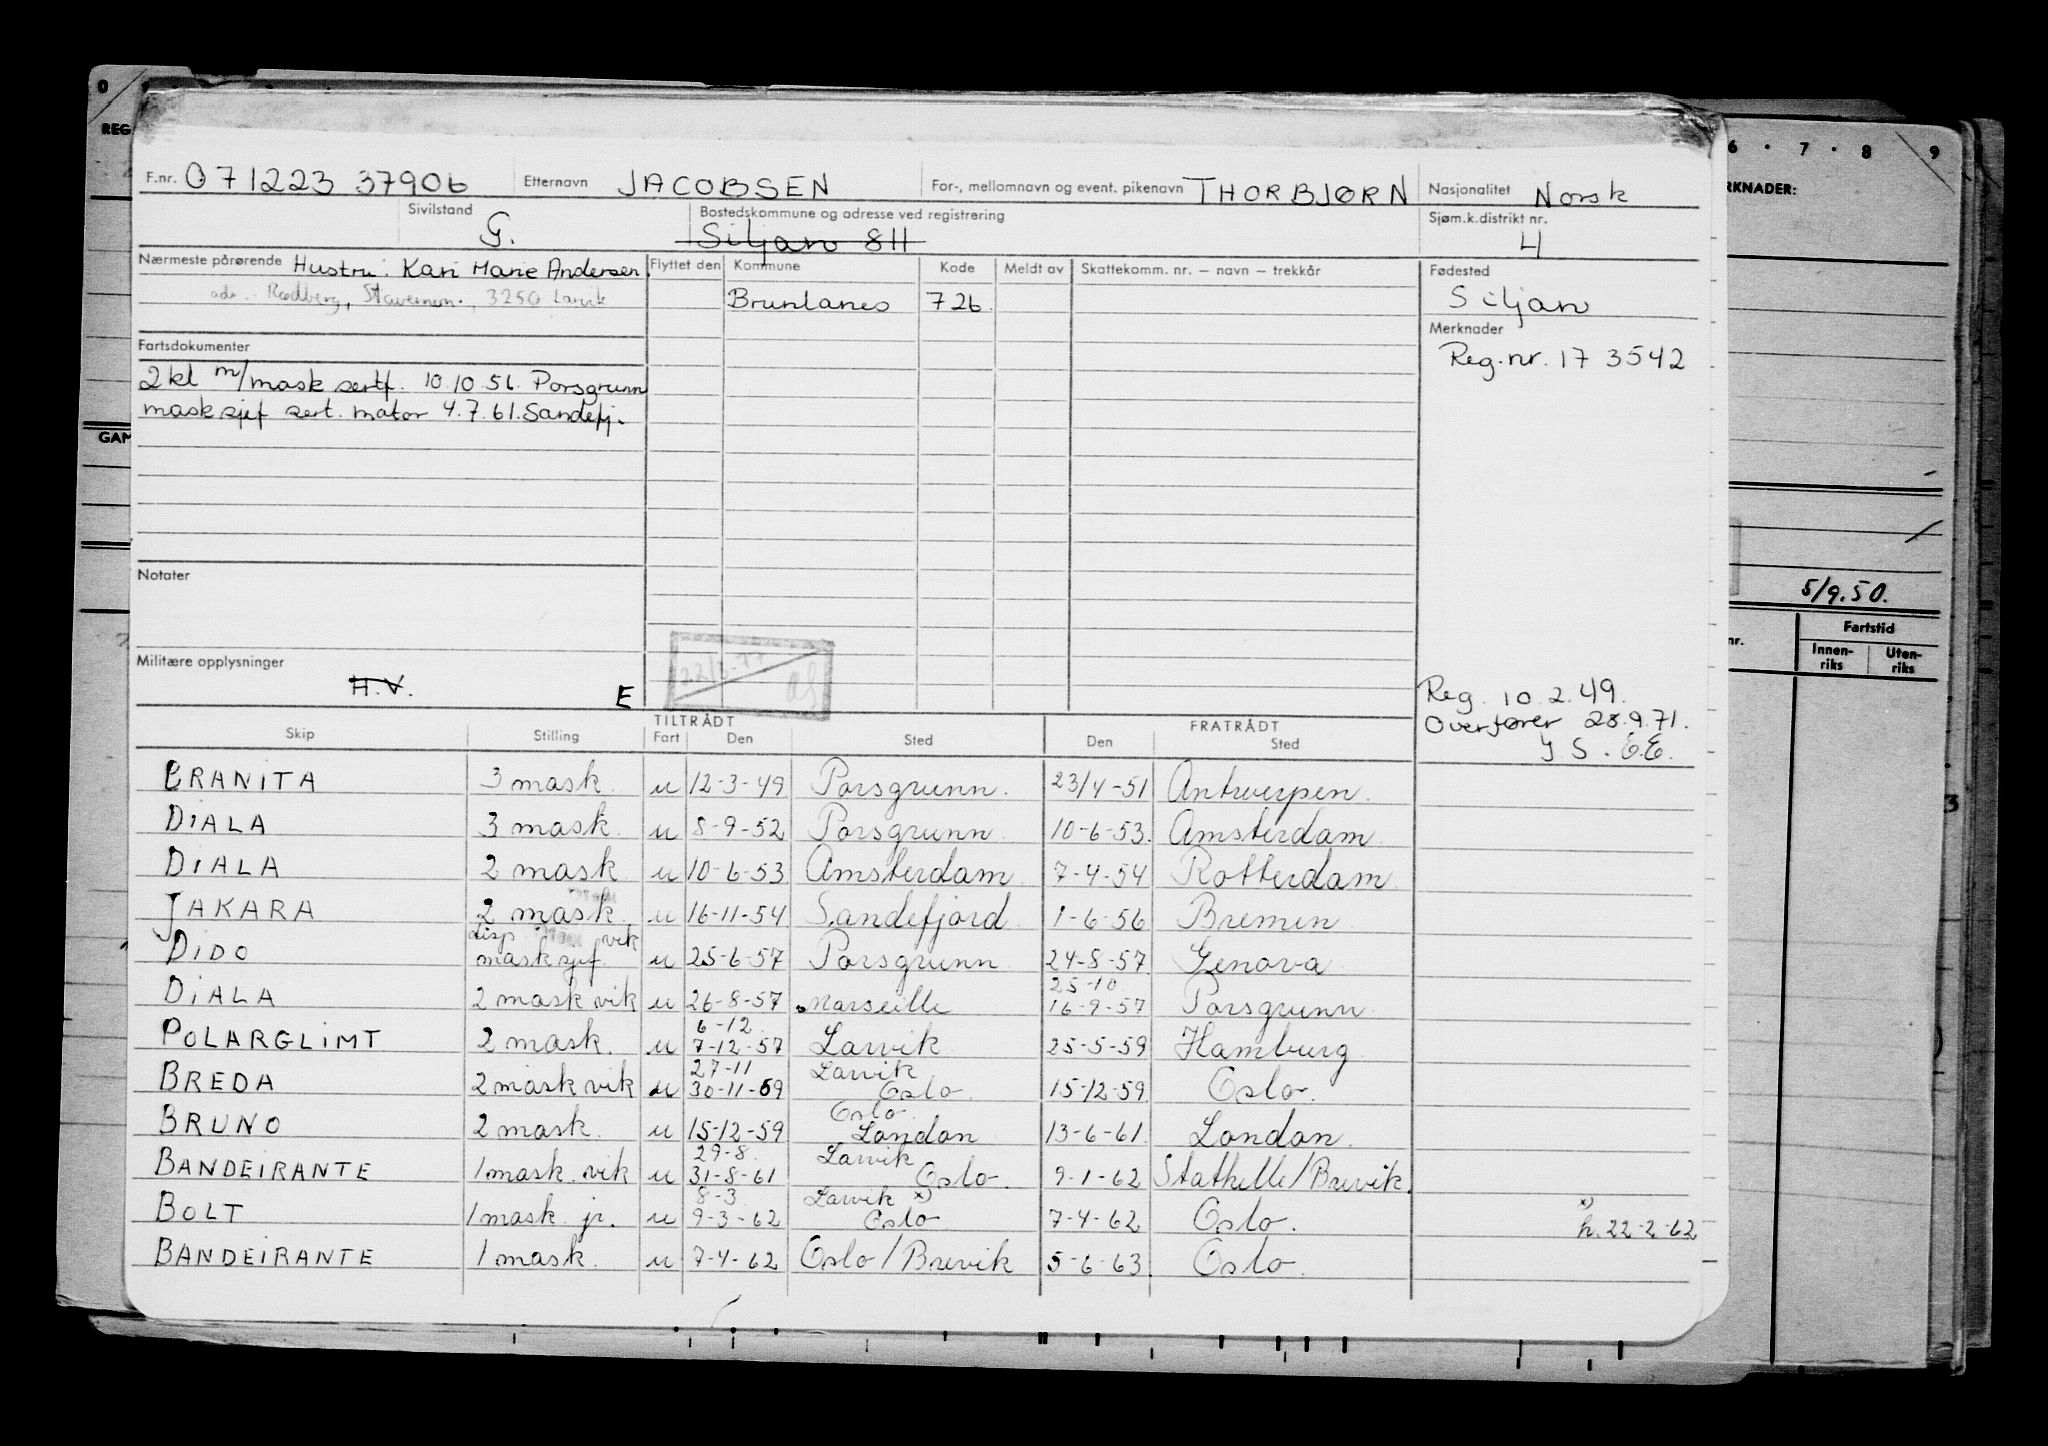 0
6 · 7 · 8 9
REG
RKNADER:
F.nr. 071223 37906 Etternavn JACOBSEN For-, mellomnavn og event. pikenavn THORBJØRN Nasjonalitet Norsk
Sivilstand G. Bostedskommune og adresse ved registrering Siljan 811 Sjøm.k.distrikt nr. 4
Nærmeste pårørende Hustru: Kari Marie Andersen Flyttet den Kommune Kode Meldt av Skattekomm. nr. — navn — trekkår Fødested
adr. Rødberg, Stavern, 3250 Larvik Brunlanes 726 Siljan
Merknader
Reg.nr. 17 3542
Fartsdokumenter
2 kl m/mask sertf. 10.10.56 Porsgrunn
mask sjef sert. motor 4.7.61. Sandefj.
GAM
Notater
5/9.50.
Fartstid
nr. Innen-riks Uten-riks
Militære opplysninger
H.V. E
22/3-77
Reg. 10.2.49.
Overfører 28.9.71.
Y S. E.E.
TILTRÅDT FRATRÅDT
Skip Stilling Fart Den Sted Den Sted
BRANITA 3 mask. u 12-3-49 Porsgrunn. 23/4-51 Antwerpen.
DIALA 3 mask. u 8-9-52 Porsgrunn 10-6-53. Amsterdam
DIALA 2 mask u 10-6-53 Amsterdam 7-4-54 Rotterdam
JAKARA 2 mask. u 16-11-54 Sandefjord 1-6-56 Bremen
DIDO disp vik mask sjef. u 25-6-57 Porsgrunn 24-8-57 Genova
DIALA 2 mask vik u 26-8-57 Marseille 25-10 16-9-57 Porsgrunn
POLARGLIMT 2 mask. u 6-12 7-12-57 Larvik 25-5-59 Hamburg
BREDA 2 mask vik u 27-11 30-11-59 Larvik Oslo 15-12-59 Oslo.
BRUNO 2 mask. u 15-12-59 Oslo London 13-6-61 London.
BANDEIRANTE 1 mask. vik u 29-8. 31-8-61 Larvik Oslo. 9-1-62 Stathelle/Brevik.
BOLT 1 mask jr. u 8-3. 9-3-62 Larvik x) Oslo 7-4-62 Oslo. x) h. 22-2-62
BANDEIRANTE 1 mask. u 7-4-62 Oslo/Brevik 5-6-63 Oslo.